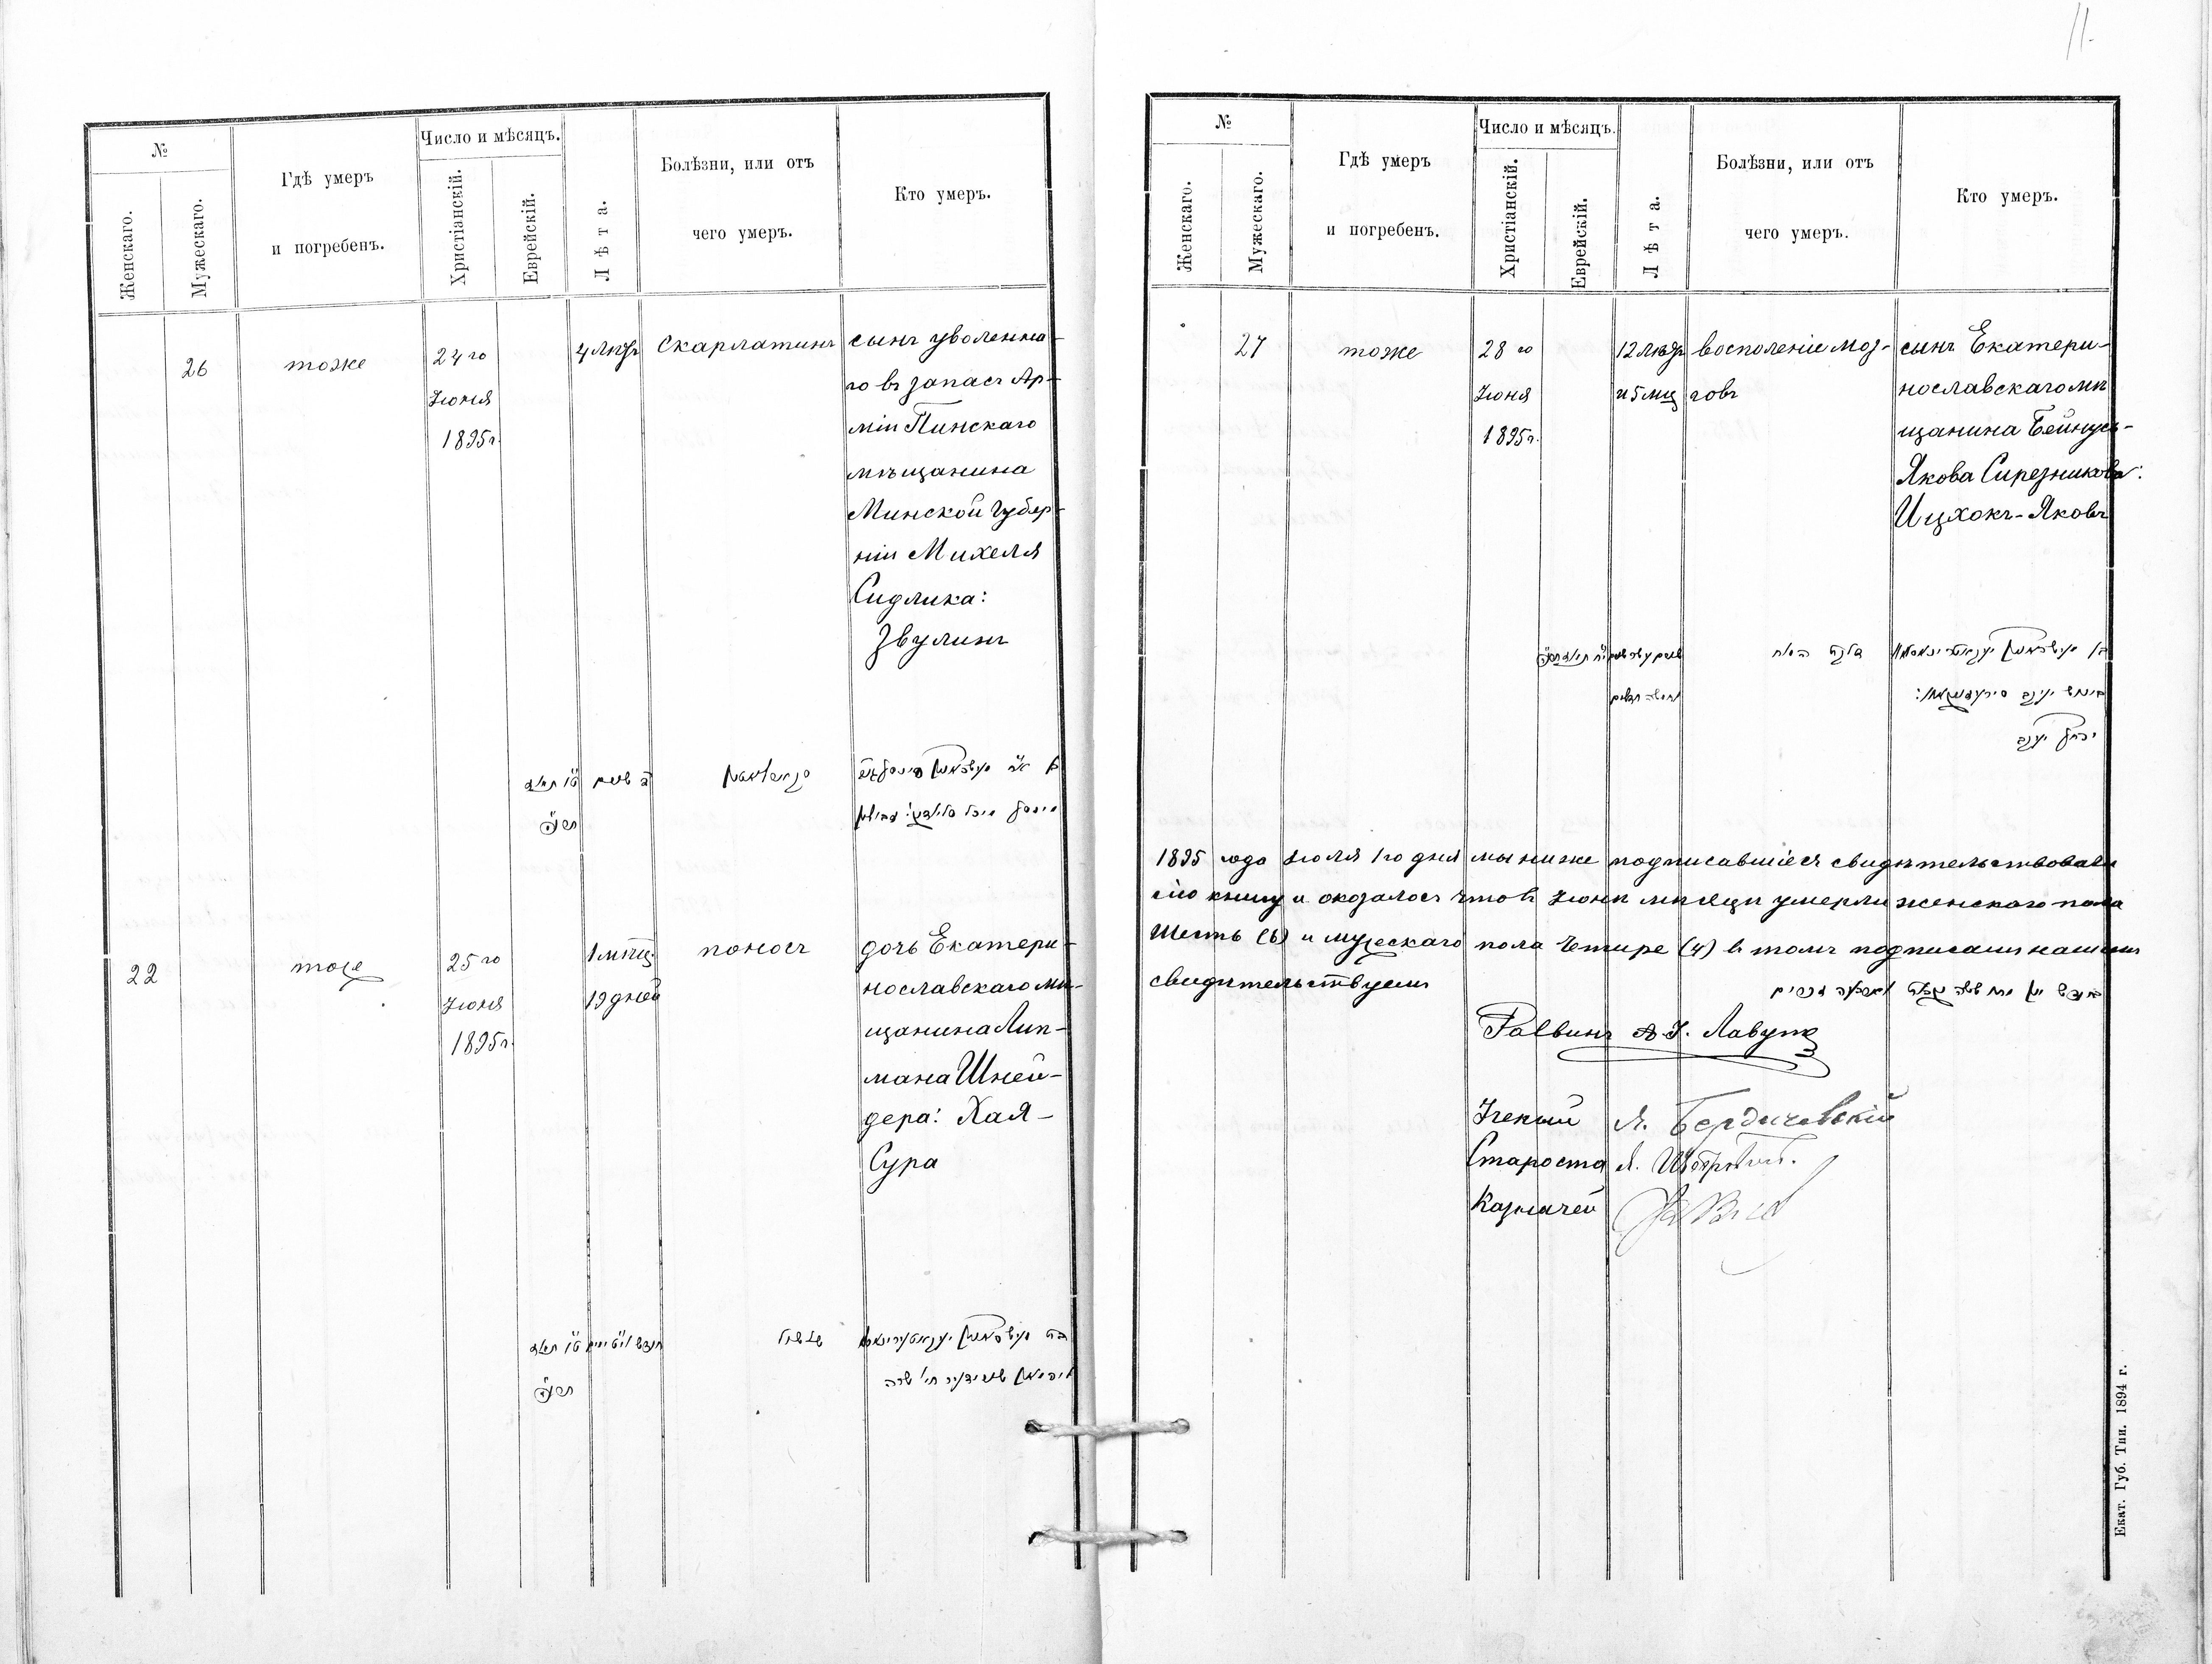 11.
№
Женскаго.
Мужескаго.
Гдѣ умеръ
и погребенъ.
Число и мѣсяцъ.
Христіанскій.
Еврейскій.
Лѣта.
Болѣзни, или отъ
чего умеръ.
Кто умеръ.
26
тоже
24 го
Іюня
1895 г.
4 лѣтъ
Скарлатинъ
сынъ уволенна-
го въ запасъ Ар-
міи Пинскаго
мѣщанина
Минской Губер-
ніи Михеля
Сидлика:
Звулинъ
ט״ו תמוז
תרנ״ה
ד׳ שנים
סקארלאטין
22
тоже
25 го
Іюня
1895 г.
1 мѣсц.
19 дней
поносъ
дочь Екатери-
нославскаго мѣ-
щанина Лип-
мана Шней-
дера: Хая-
Сура
שלשול
ליפמאן שניידער חי׳ שרה
№
Женскаго.
Мужескаго.
Гдѣ умеръ
и погребенъ.
Число и мѣсяцъ.
Христіанскій.
Еврейскій.
Лѣта.
Болѣзни, или отъ
чего умеръ.
Кто умеръ.
27
тоже
28 го
Іюня
1895 г.
12 лѣтъ
и 5 мц
восполеніе моз-
говъ
сынъ Екатери-
нославскаго мѣ
щанина Бейнусъ-
Якова Сирезникова:
Ицхокъ-Яковъ
דלקת המוח
יצחק יעקב
1895 года Іюля 1го дня мы ниже подписавшіеся свидѣтельствовали
сію книгу и оказалось что въ Іюнѣ мѣсяцѣ умерли женскаго пола
Шесть (6) и мужескаго пола Четире (4) въ томъ подписами нашими
свидѣтельствуемъ
Раввинъ
Лавутъ
Ученый Я. Бердичевскій
Староста
Казначей
Екат. Губ. Тип. 1894 г.